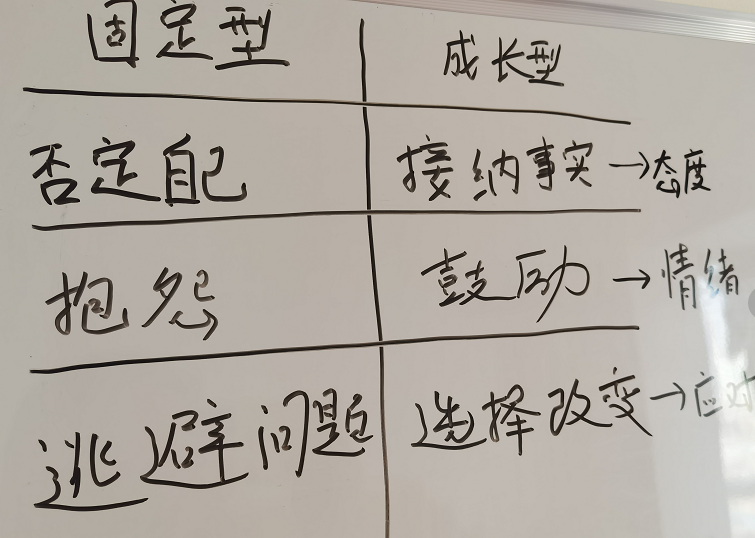 固定型 成长型
否定自己 接纳事实→态度
抱怨 鼓励→情绪
逃避问题 选择改变→应对